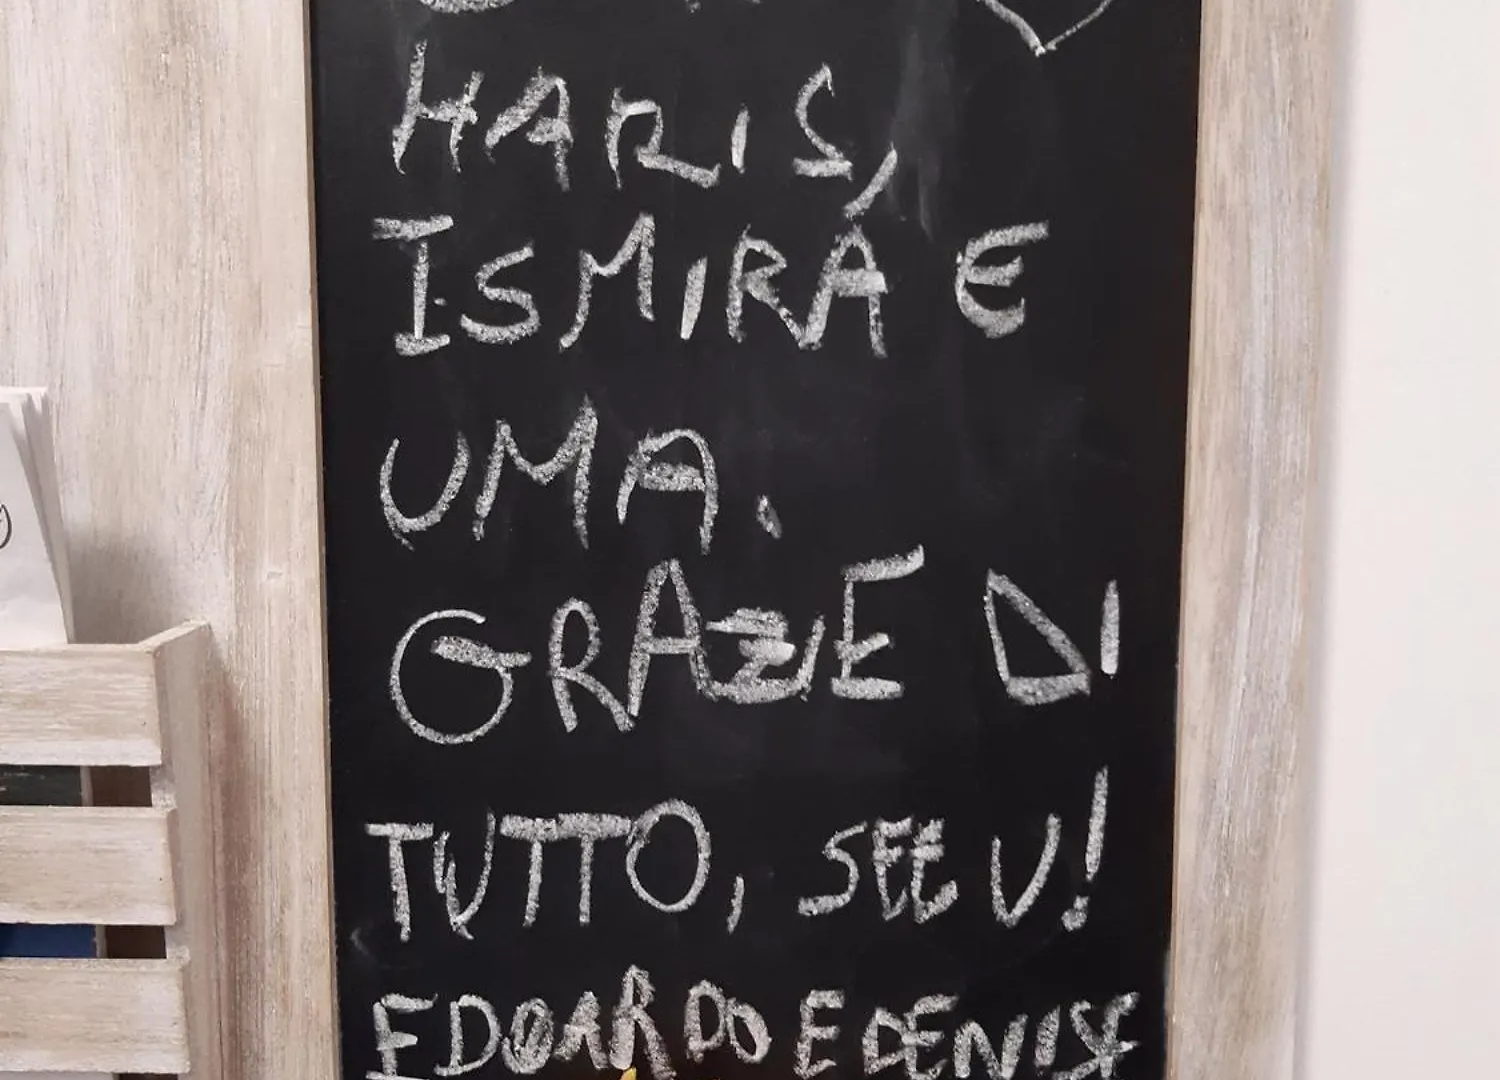 HARIS,
ISMIRA E
UMA.
GRAZIE DI
TUTTO, SEE U!
EDOARDO E DENISE